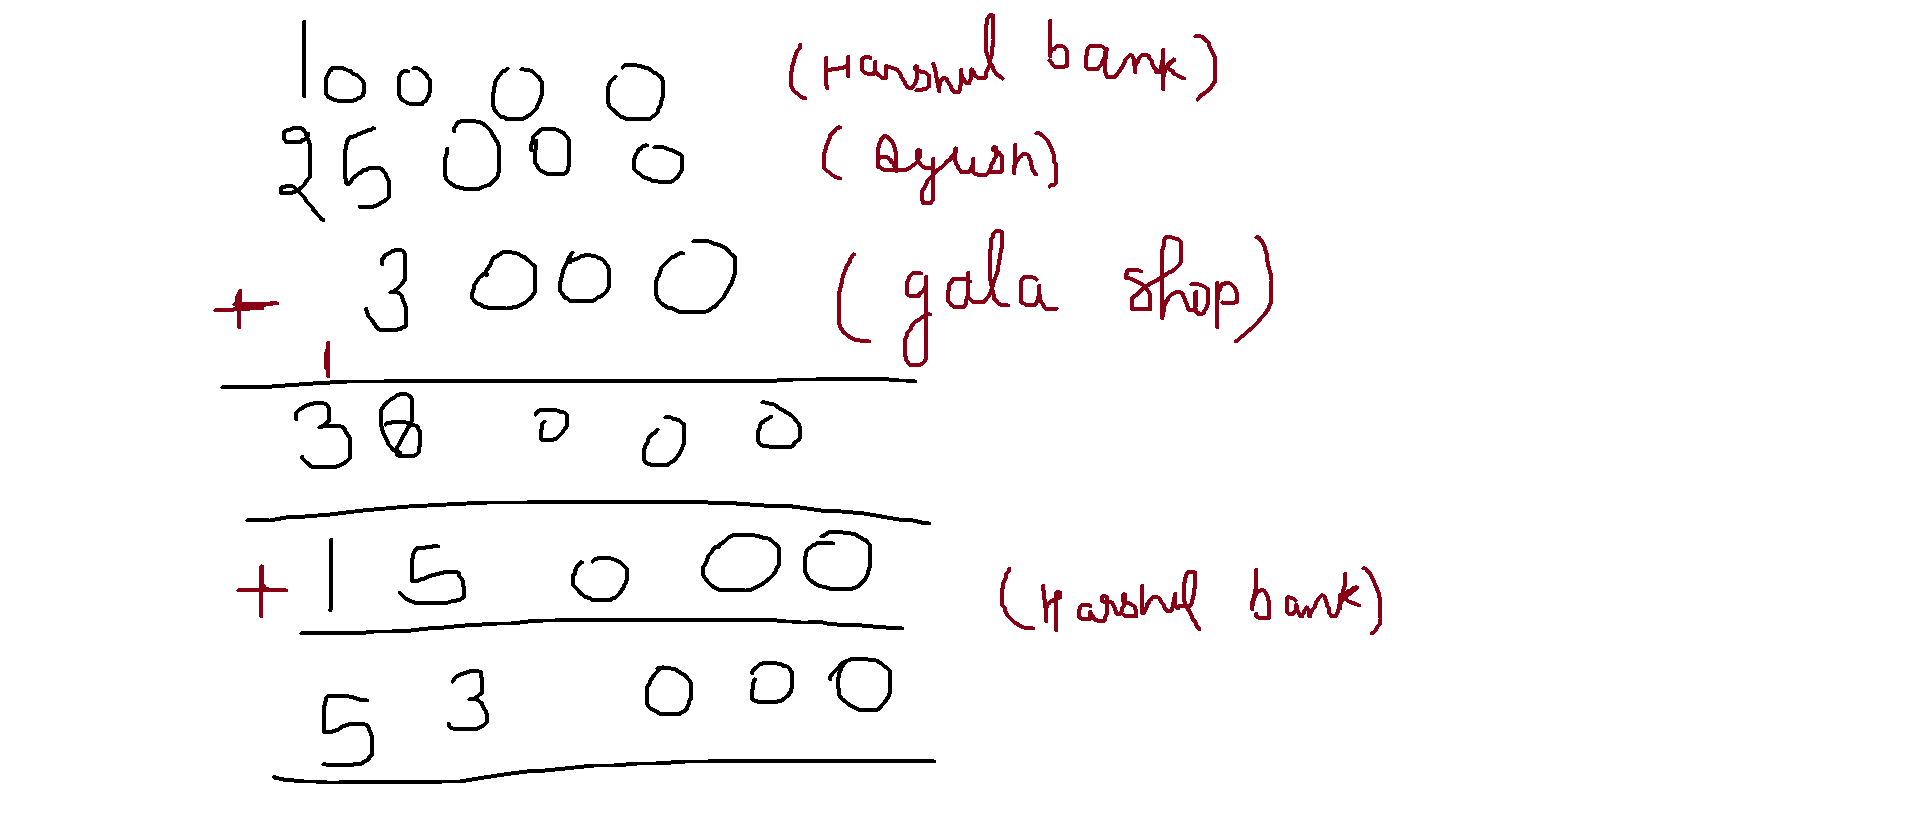 10000 (Harshul bank)
25000 (Ayush)
+ 3000 (gala shop)
1
38000
+ 15000 (Harshul bank)
53000